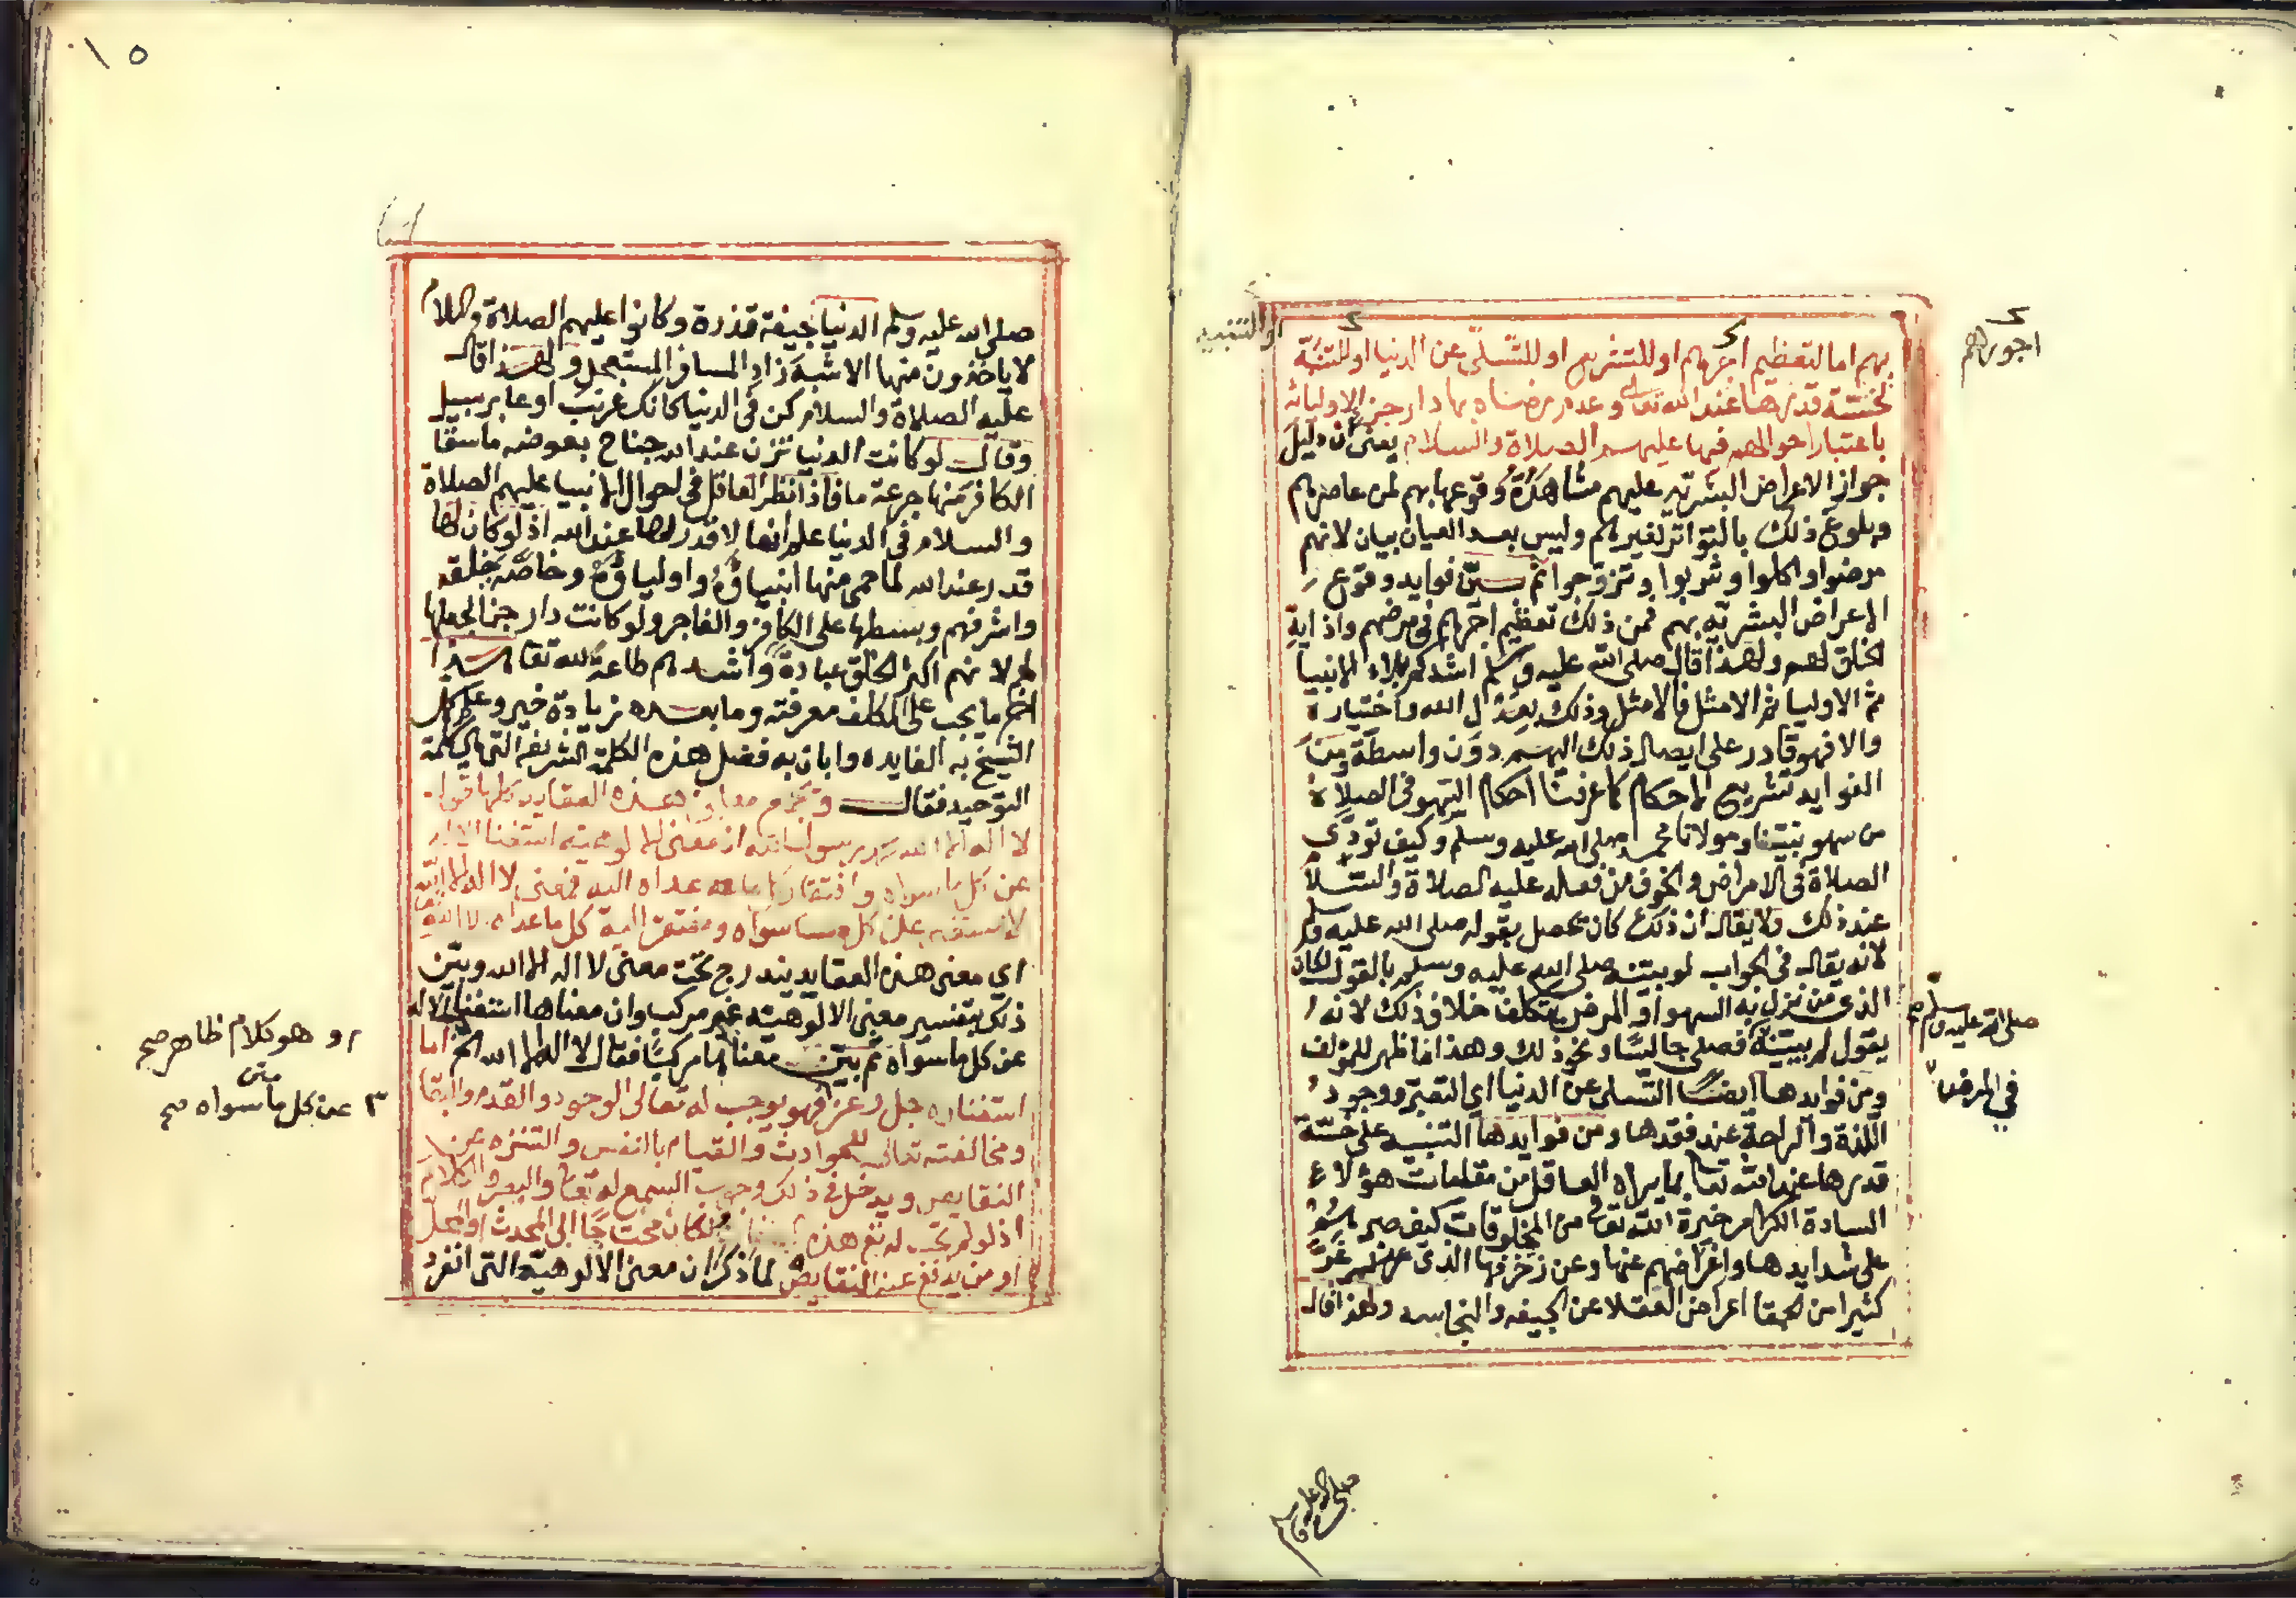 بهم اما لتعظيم اجرهم او للتشريع او للتسلي عن الدنيا او للتنبه
لخسة قدرها عند الله تعالى وعدم رضاه بها دار جزا لاوليائه
باعتبار احوالهم فيها عليهم الصلاة والسلام يعني ان دليل
جواز الاعراض البشرية عليهم مشاهدة وقوعها بهم لمن عاصرهم
وبلوغ ذلك بالتواتر لغيرهم وليس بعد العيان بيان لانهم
مرضوا واكلوا وشربوا وتزوجوا ثم بين فوايد وقوع
الاعراض البشرية بهم فمن ذلك تعظيم اجرهم في مرضهم واذاية
الخلق لهم ولهذا قال صلى الله عليه وسلم اشدكم بلاء الانبيا
ثم الاوليا ثم الامثل فالامثل وذلك بعدل الله واختياره
والا فهو قادر على ايصال ذلك اليهم دون واسطة ومن
الفوايد تشريع الاحكام كما عرفنا احكام السهو في الصلاة
من سهو نبينا ومولانا محمد صلى الله عليه وسلم وكيف تودى
الصلاة في الامراض والخوف من فعله عليه الصلاة والسلا
عند ذلك ولا يقال ان ذلك كان يحصل بقوله صلى الله عليه وسلم
لانه يقال في الجواب لو بينه صلى الله عليه وسلم بالقول لكان
الذي من نزل به السهو او المرض يتكلف خلاف ذلك لانه
يقول لم يبينه فصلى جالسا ونحو ذلك وهذا ما ظهر للمؤلف
ومن فوايدها ايضا التسلي عن الدنيا اي التصبر ووجود
اللذة والراحة عند فقدها ومن فوايدها التنبيه على خسة
قدرها عند الله تعالى بما يراه العاقل من مقامات هؤلاء
السادة الكرام خيرة الله تعالى من المخلوقات كيف صبروا
على شدايدها واعراضهم عنها وعن زخرفها الذي غر
كثيرا من الحمقا اعراض العقلا عن الجيفه والنجاسه ولهذا قال
او التنبيه
اجورهم
صلى الله عليه وسلم صح
في المرض
صلى الله عليه وسلم
١٥
صلى الله عليه وسلم الدنيا جيفة قذرة وكانوا عليهم الصلاة والسلام
لا ياخذون منها الا شبه زاد المسافر المستعجل ولهذا قال
عليه الصلاة والسلام كن في الدنيا كانك غريب او عابر سبيل
وقال لو كانت الدنيا تزن عند الله جناح بعوضه ما سقا
الكافر منها جرعة ما فاذا نظر العاقل في احوال الانبيا عليهم الصلاة
والسلام في الدنيا علم انها لا قدر لها عند الله اذ لو كان لها
قدر عند الله لما حمى منها انبياؤه واولياؤه وخاصة خلقه
واشرفهم وبسطها على الكافر والفاجر ولو كانت دار جزا لجعلها
لهم لانهم اكثر الخلق عبادة واشدهم طاعة لله تعالى
ما يجب على المكلف معرفته وما بعده زيادة خير وعلم كمل
الشيخ به الفايده وابان به فضل هذه الكلمة الشريفة التي هي كلمة
التوحيد فقال ويجمع معاني هذه العقايد كلها قول
لا اله الا الله محمد رسول الله اذ معنى الالوهية استغنا الاله
عن كل ما سواه وافتقار كل ما عداه اليه فمعنى لا اله الا الله
لا مستغنى عن كل ما سواه ومفتقر اليه كل ما عداه الا الله
اي معنى هذه العقايد يندرج تحت معنى لا اله الا الله وبين
ذلك بتفسير معنى الالوهية غير مركب وان معناها استغنا الاله
عن كل ما سواه ثم بين معناهما مركبا فقال لا اله الا الله الخ اما
استغناؤه جل وعز فهو يوجب له تعالى الوجود والقدم والبقا
ومخالفته تعالى للحوادث والقيام بالنفس والتنزه عن
النقايص ويدخل في ذلك وجوب السمع له تعالى والبصر والكلام
اذ لو لم تجب له تعالى هذه لكان محتاجا الى المحدث او المحل
او من يدفع عنه النقايص لما ذكر ان معنى الالوهية التي انفرد
وهو كلام ظاهر صح
٣ عن كل ما سواه صح
متن